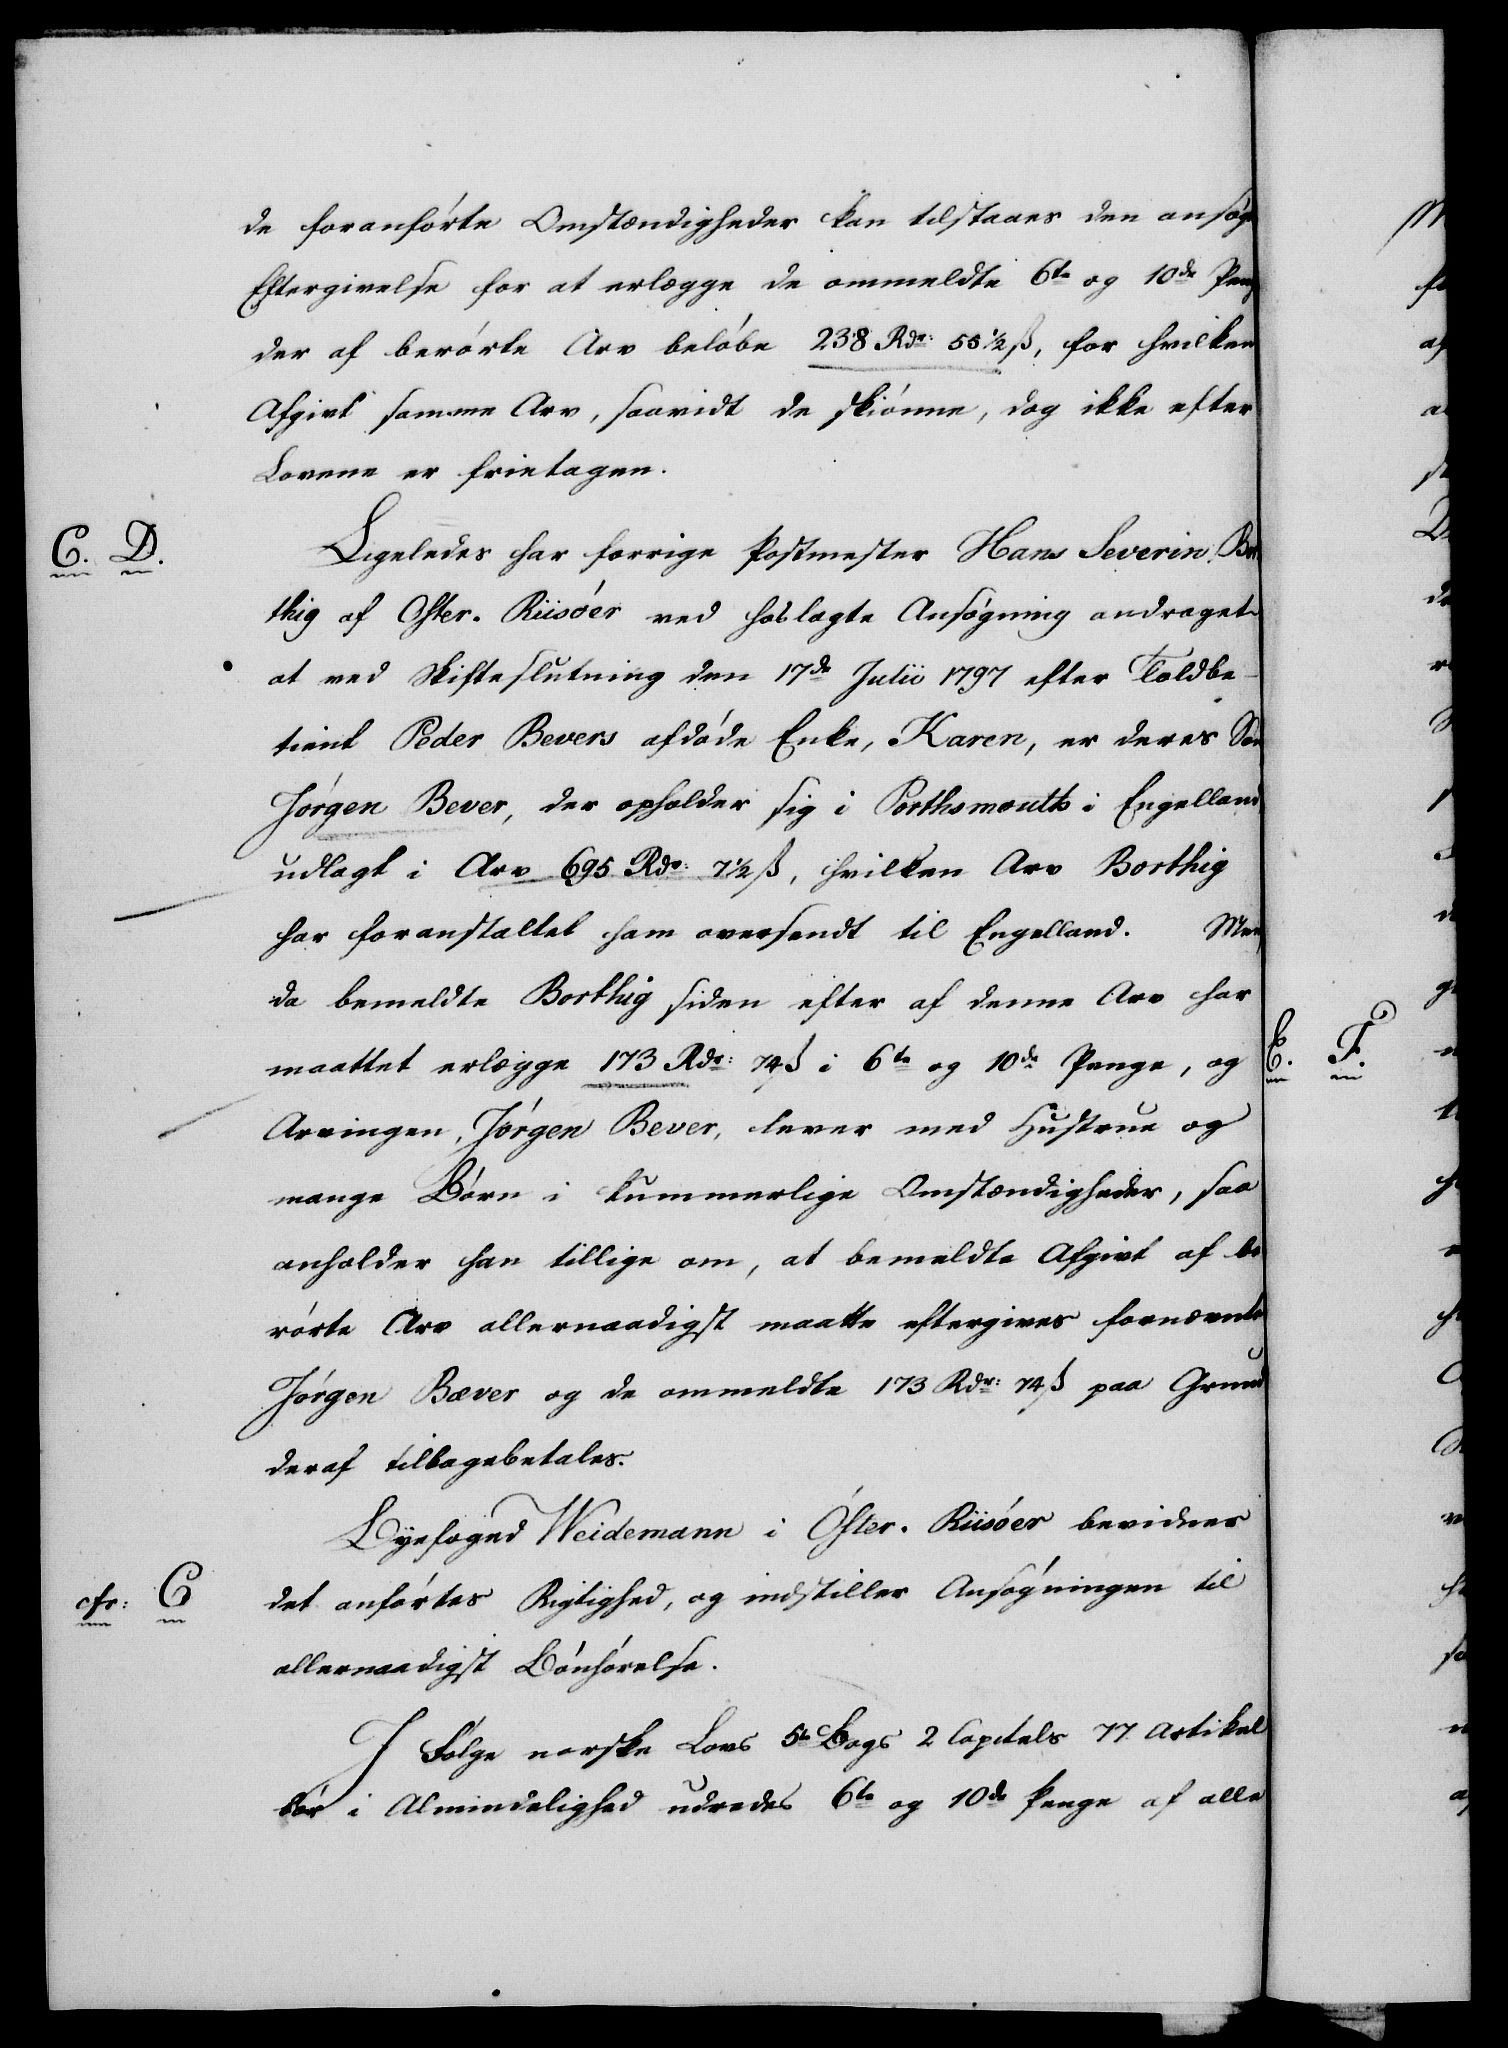 de foranførte Omstændigheder kan tilstaaes den ansøg
Eftergivelse for at erlægge de ommeldte 6te og 10de Peng
der af berørte Arv beløbe 238 Rdr: 55 1/2 ß, for hvilken
Afgivt samme Arv, saavidt de skiønne, dog ikke efter
Lovene er frietagen.
C. D.
Ligeledes har forrige Postmester Hans Severin Bor
thig af Øster-Riisøer ved hoslagte Ansøgning andraget
at ved Skifteslutning den 17de Julii 1797 efter Toldbe-
tient Peder Bevers afdøde Enke, Karen, er deres Søn
Jørgen Bever, der opholder sig i Porthsmouth i Engelland
udlagt i Arv 695 Rdr: 7 1/2 ß, hvilken Arv Borthig
har foranstaltet ham oversendt til Engelland. Men
da bemeldte Borthig siden efter af denne Arv har
maattet erlægge 173 Rdr: 74 ß i 6te og 10de Penge, og
Arvingen, Jørgen Bever, lever med Hustrue og
mange Børn i kummerlige Omstændigheder, saa
anholder han tillige om, at bemeldte Afgivt af be
rørte Arv allernaadigst maatte eftergives fornævnte
Jørgen Bæver og de ommeldte 173 Rdr: 74 ß paa Grund
deraf tilbagebetales.
Byefoged Weidemann i Øster-Riisøer bevidner
cfr: C
det anførtes Rigtighed, og indstiller Ansøgningen til
allernaadigst Bønhørelse.
I Følge norske Lovs 5te Bogs 2 Capitels 77 Artikel
bør i Almindelighed udredes 6te og 10de Penge af alle
E. F.